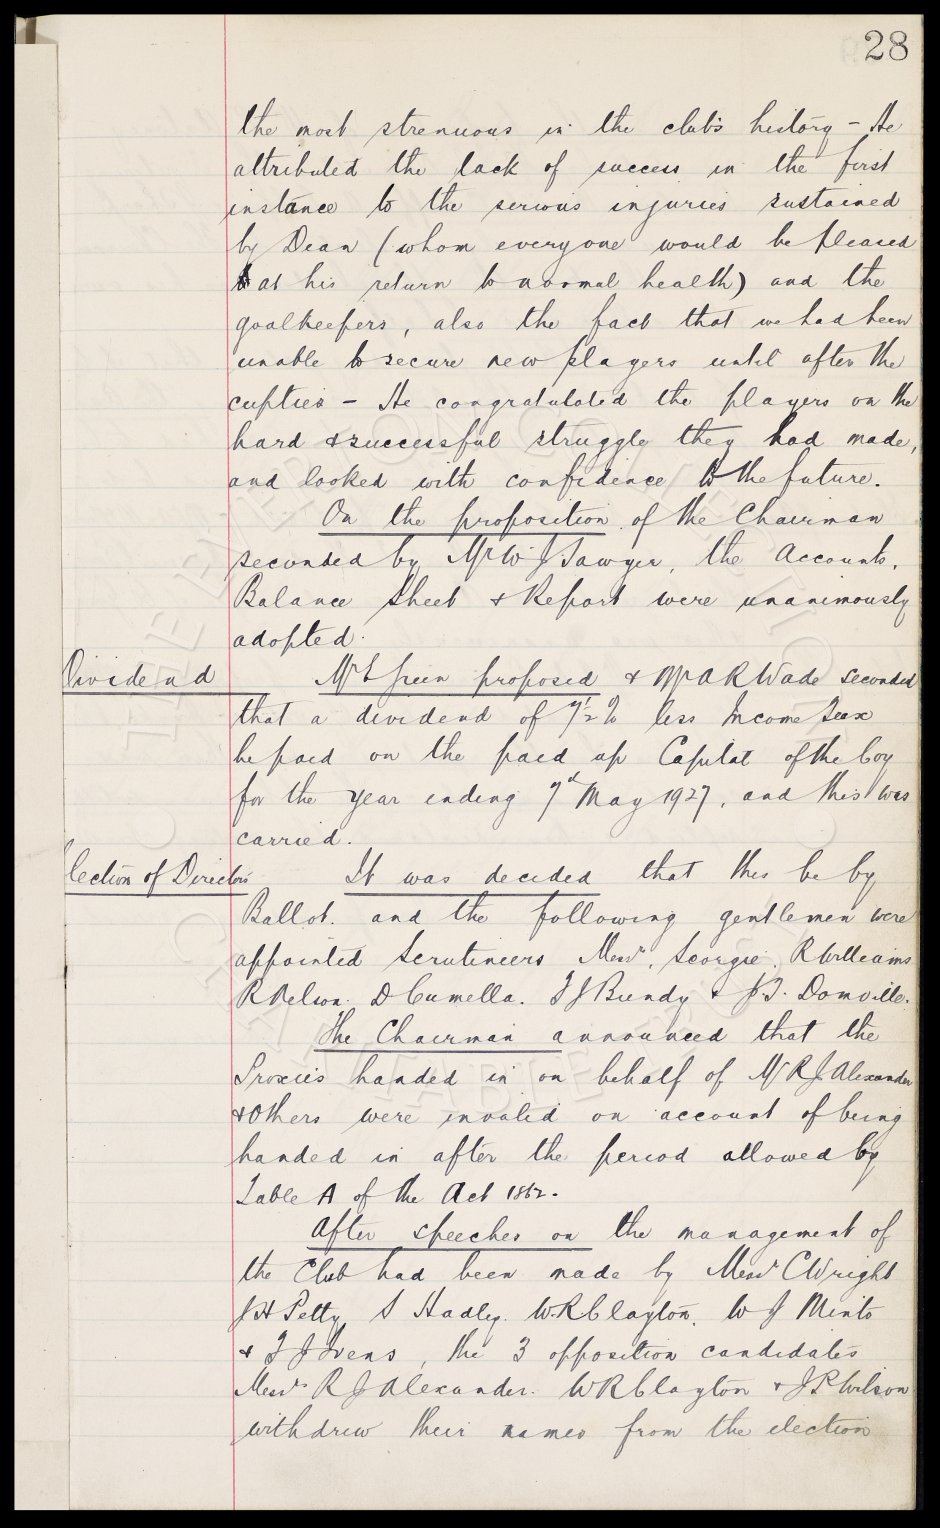 28
the most strenuous in the club's history - He
attributed the lack of success in the first
instance to the serious injuries sustained
by Dean (whom everyone would be pleased
at his return to normal health) and the
goalkeepers, also the fact that we had been
unable to secure new players until after the
cupties - He congratulated the players on the
hard & successful struggle they had made,
and looked with confidence to the future.
On the proposition of the Chairman
seconded by Mr W J Sawyer, the Accounts,
Balance Sheet & Report were unanimously
adopted.
Dividend
Mr Green proposed & Mr A R Wade seconded
that a dividend of 7½% less Income Tax
be paid on the paid up Capital of the Coy
for the year ending 7th May 1927, and this was
carried.
Election of Directors
It was decided that this be by
Ballot. and the following gentlemen were
appointed Scrutineers Messrs. Scorgie, R Williams
R Nelson. D Cumella. T J Bundy & Domville.
The Chairman announced that the
Proxies handed in on behalf of Mr R J Alexander
& Others were invalid on account of being
handed in after the period allowed by
Table A of the Act 1862.
After speeches on the management of
the Club had been made by Messrs C Wright
J H Petty S Hadley. W.R Clayton. W J Minto
& T J Ivens, the 3 opposition candidates
Messrs R J Alexander. W R Clayton & J P Wilson
withdrew their names from the election